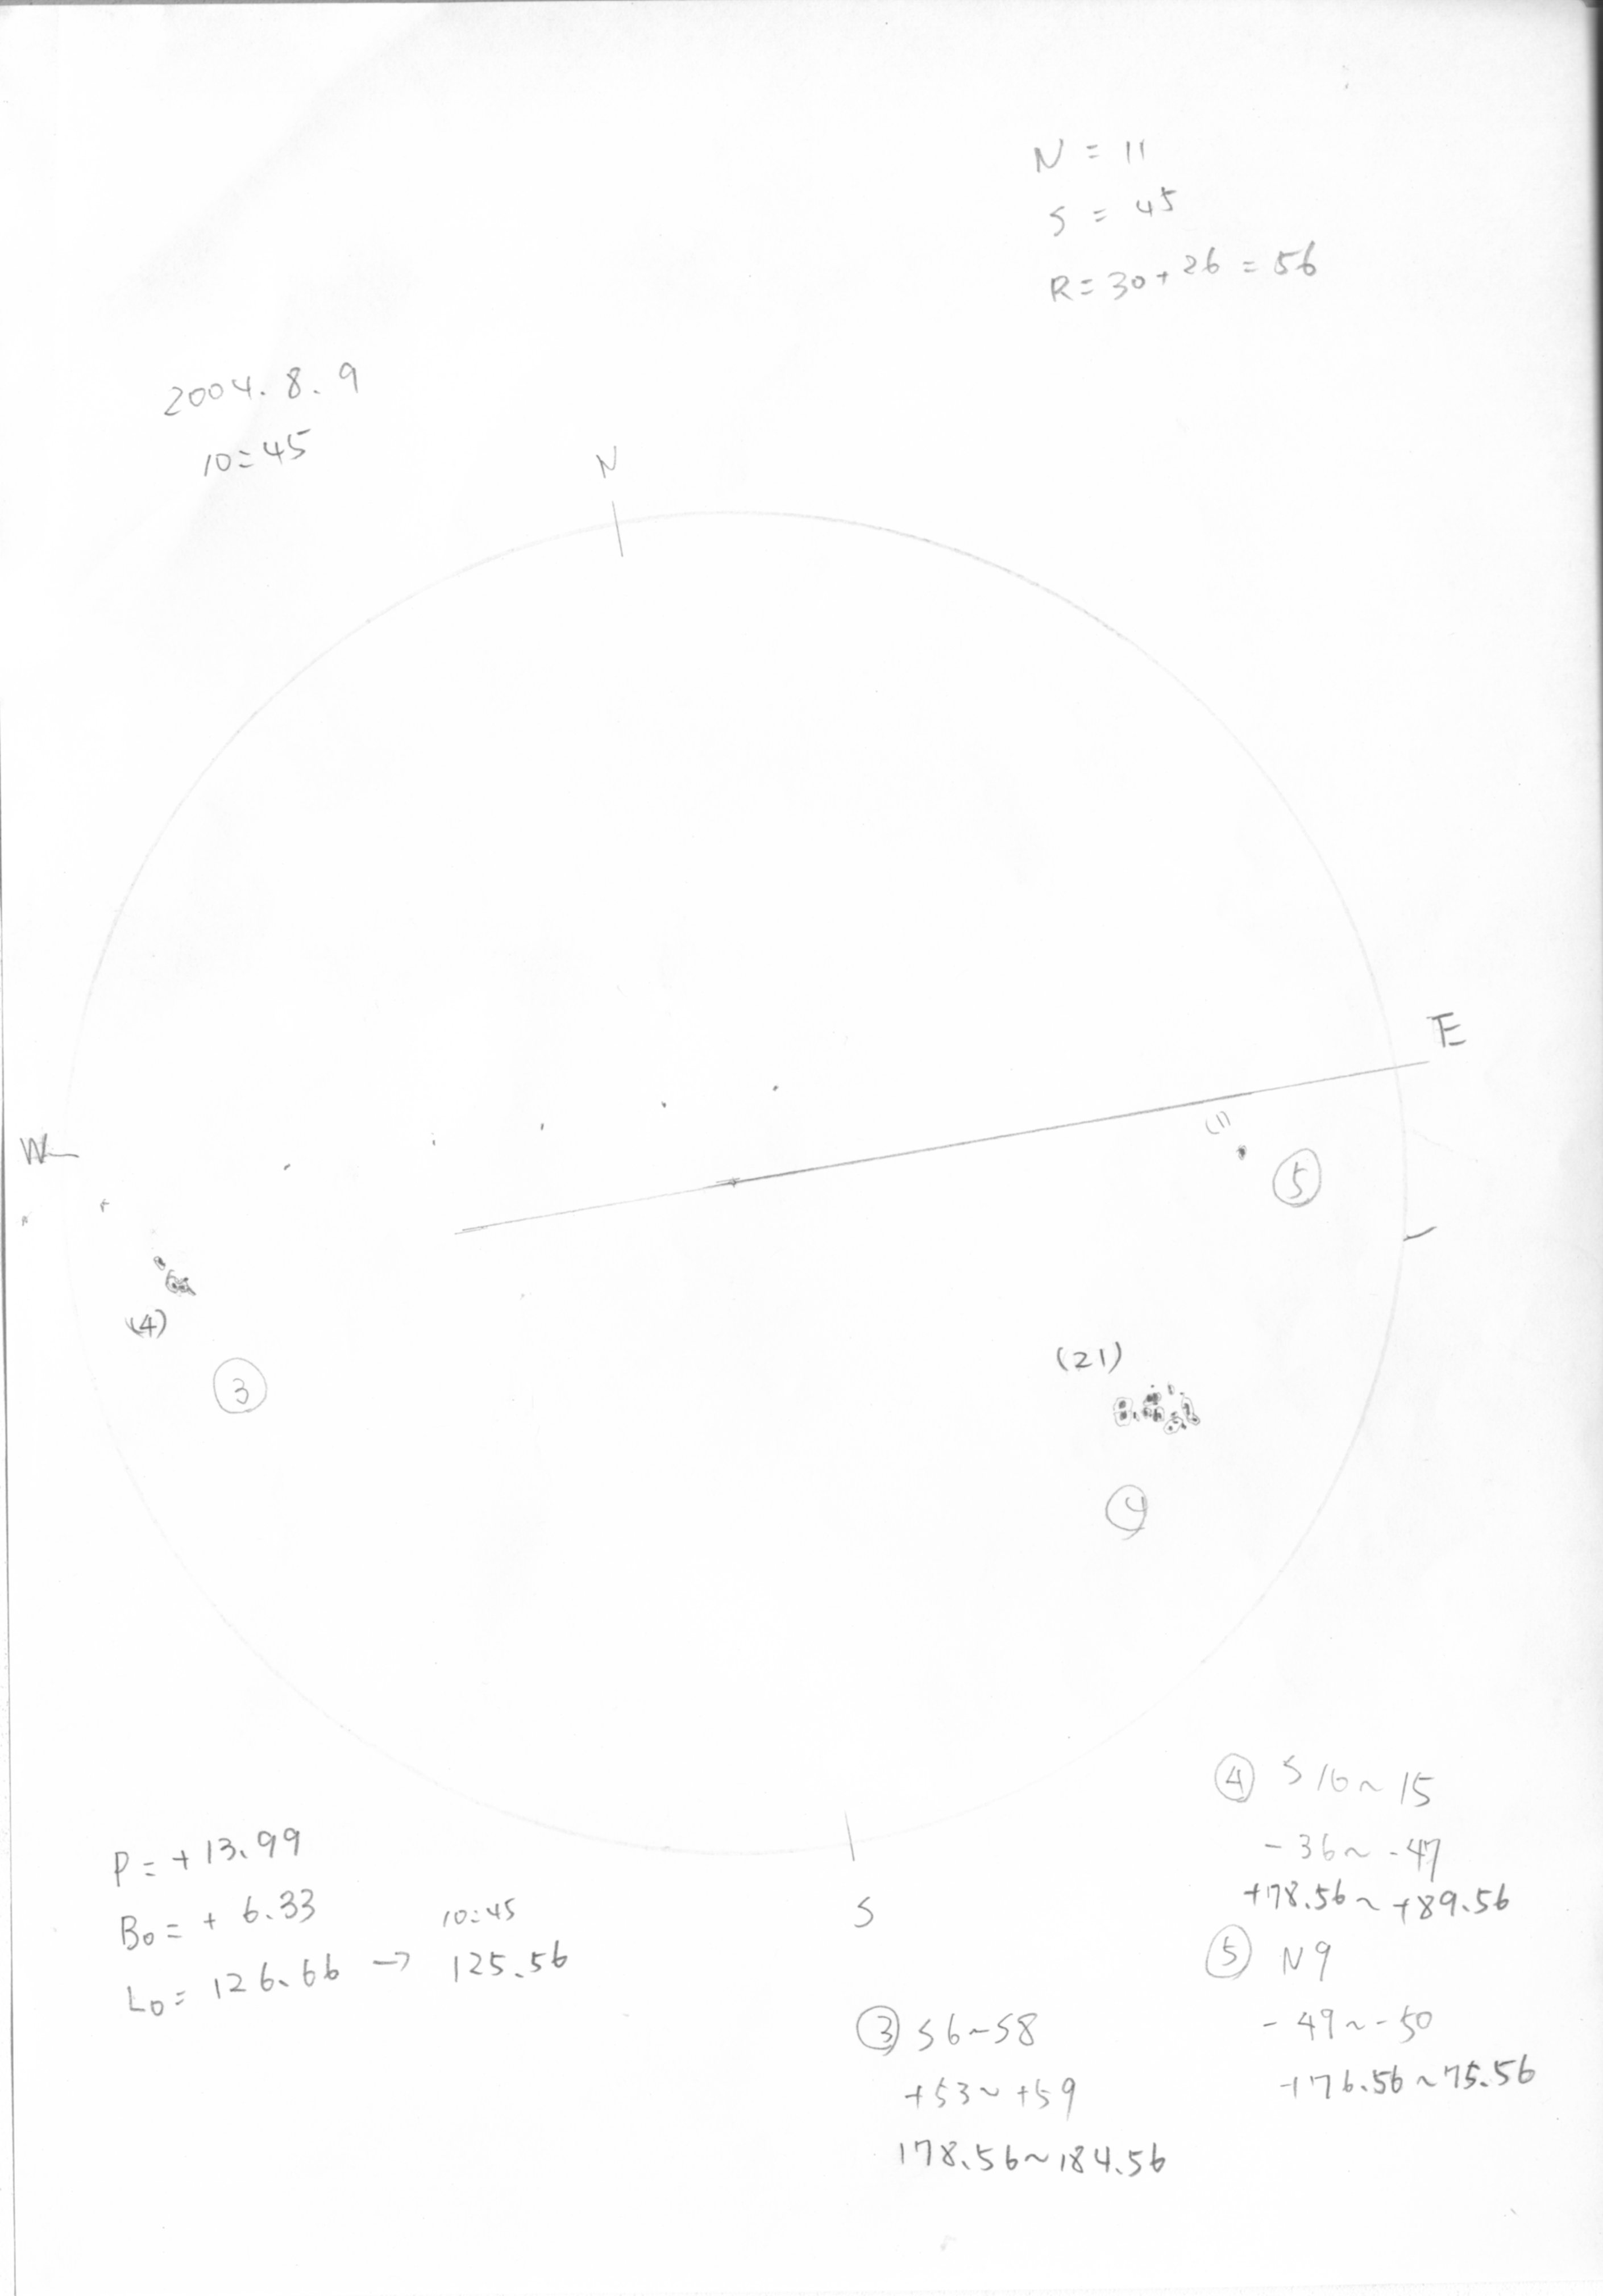 N = 11
S = 45
R = 30 + 26 = 56
2004. 8. 9
10:45
N
E
W
(1)
⑤
(4)
③
(21)
④
S
P = +13.99
B0 = + 6.33
10:45
L0 = 126.66 → 125.56
④ S 16 ~ 15
- 36 ~ - 47
+78.56 ~ +89.56
⑤ N9
- 49 ~ - 50
+76.56 ~ 75.56
③ S6 ~ S8
+53 ~ +59
178.56 ~ 184.56